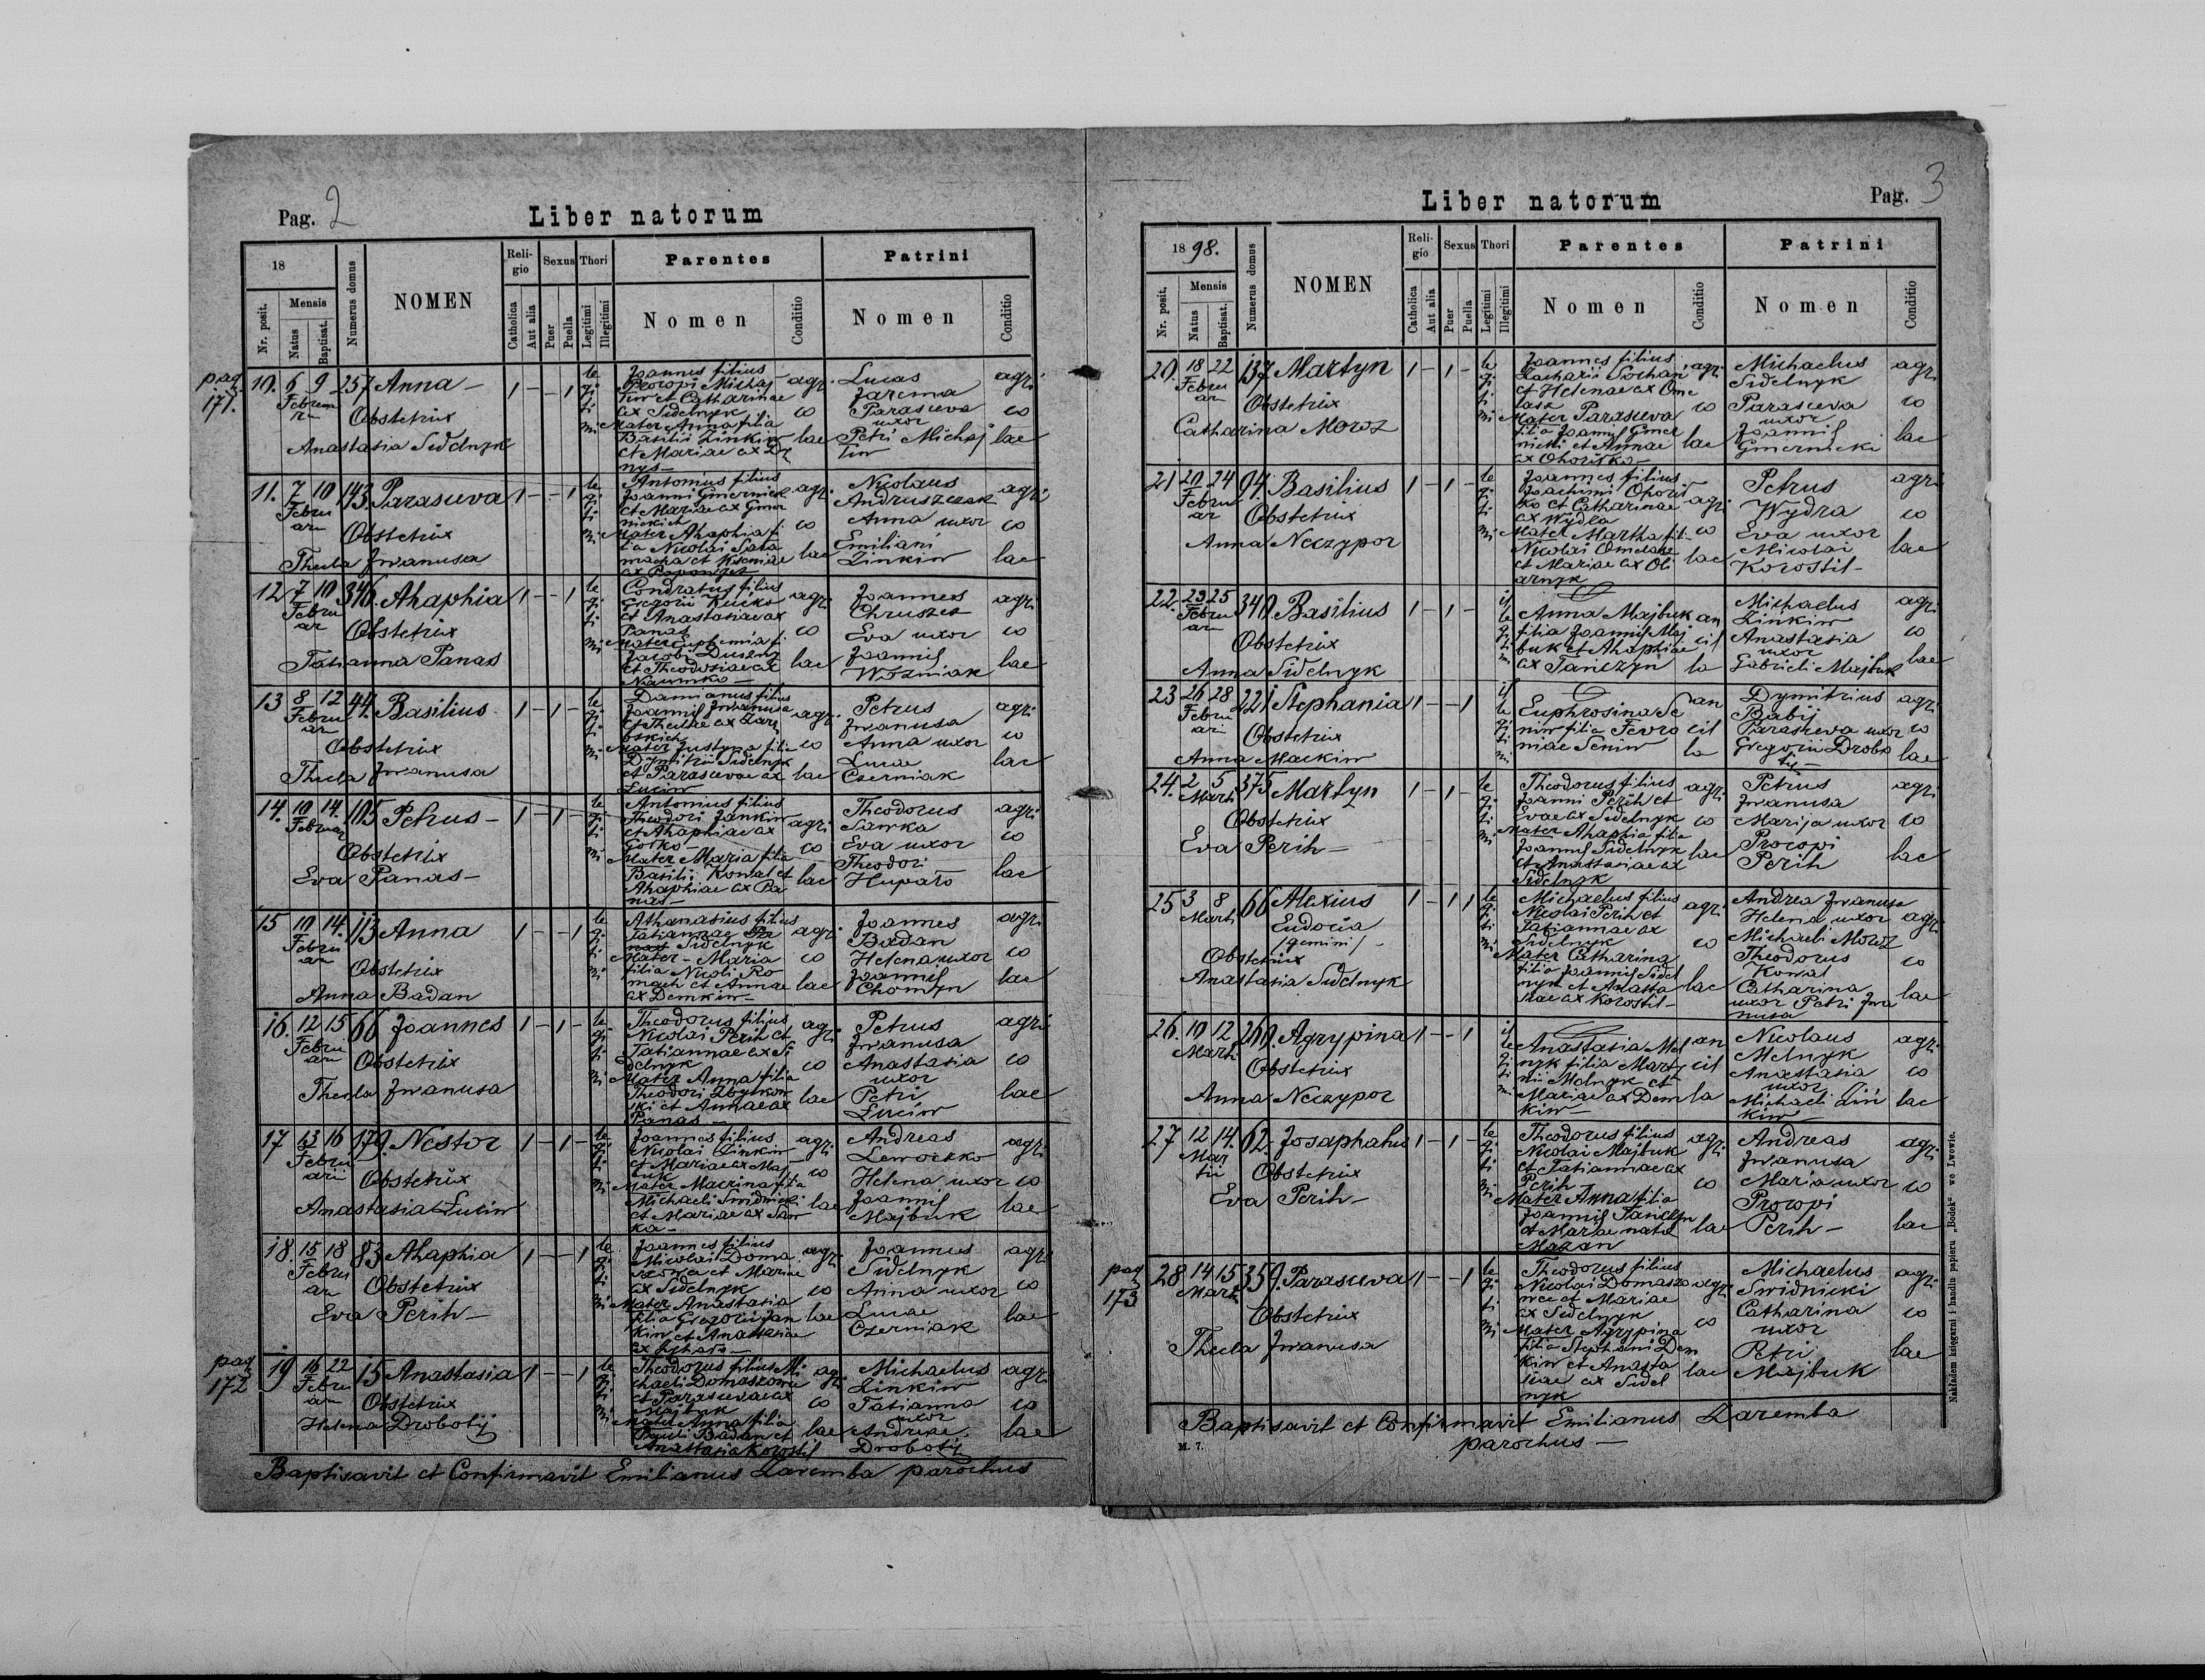 Pag. 2
Liber natorum
18
Nr. posit.
Mensis
Natus
Baptisat.
Numerus domus
NOMEN
Religio
Catholica
Aut alia
Sexus
Puer
Puella
Thori
Legitimi
Illegitimi
Parentes
Nomen
Conditio
Patrini
Nomen
Conditio
pag 171.
10. 6 9 257 Anna — 1 — — 1
Obstetrix
Anastasia Sidelnyk
legitimi
Joannes filius
Procopi Michaj
liw et Catharinae
ex Sidelnyk
Mater Anna filia
Basilii Linkiw
et Mariae ex Dy
nys —
agricolae
Lucas
Jarema
Parasceva
uxor
Petri Michaj
liw
agricolae
11. 7 10 143. Parasceva 1 — — 1
Februar
Obstetrix
Thecla Iwanusa
legitimi
Antonius filius
Joanni Gmernick
et Mariae ex Gmer
nickich
Mater Ahaphia fi
lia Nicolai Sala
macha et Kseniae
agricolae
Nicolaus
Andruszczak
Anna uxor
Emiliani
Linkiw
agricolae
12 7 10 346. Ahaphia 1 — — 1
Februar
Obstetrix
Tatianna Panas
legitimi
Condratus filius
Gregorii Kuiko
et Anastasiae ex
Panas
Mater Euphemia fi
Jacobi Duseny
et Theodosiae ex
Naumko —
agricolae
Joannes
Chruszcz
Eva uxor
Joannis
Woźniak
agricolae
13 8 12 44. Basilius 1 — 1 —
Februar
Obstetrix
Thecla Iwanusa
legitimi
Damianus filius
Joannis Iwanusa
et Theclae ex Zary
bskich
Mater Justyna filia
Dymitrii Sidelnyk
et Parascevae ex
Luciw
agricolae
Petrus
Iwanusa
Anna uxor
Lucae
Czerniak
agricolae
14. 10 14. 105 Petrus — 1 — 1 —
Februar
Obstetrix
Eva Panas —
legitimi
Antonius filius
Theodori Jankiw
et Ahaphiae ex
Gorko —
Mater Maria filia
Basilii Kowal et
Ahaphiae ex Pa
nas —
agricolae
Theodorus
Sawka
Eva uxor
Theodori
Hupalo
agricolae
15 10 14. 113 Anna 1 — — 1
Februar
Obstetrix
Anna Badan
legitimi
Athanasius filius
Tatiannae
Sidelnyk
Mater — Maria
filia Nicoli Ro
mach et Annae
ex Demkiw —
agricolae
Joannes
Badan
Helena uxor
Joannis
Chomyn
agricolae
16. 12 15 66 Joannes 1 — 1 —
Februar
Obstetrix
Thecla Iwanusa
legitimi
Theodorus filius
Nicolai Perih et
Tatiannae ex Si
delnyk
Mater Anna filia
Theodori Zbytkow
ski et Annae ex
Panas —
agricolae
Petrus
Iwanusa
Anastasia
uxor
Petri
Luciw
agricolae
17 13 16 179. Nestor 1 — 1 —
Februarii
Obstetrix
Anastasia Luciw
legitimi
Joannes filius
Nicolai Linkiw
et Mariae ex Maj
buk
Mater Macrina filia
Michaeli Swidnicki
et Mariae ex Saw
ka —
agricolae
Andreas
Lewočko
Helena uxor
Joannis
Majbuk
agricolae
18. 15 18 83 Ahaphia 1 — — 1
Februar
Obstetrix
Eva Perih —
legitimi
Joannes filius
Nicolai Doma
szowa et Mariae
ex Sidelnyk
Mater Anastasia
filia Gregorii Jan
kiw et Anastasiae
agricolae
Joannes
Sidelnyk
Anna uxor
Lucae
Czerniak
agricolae
pag 172
19 16 22 15 Anastasia 1 — — 1
Februar
Obstetrix
Helena Drobotij
legitimi
Theodorus filius Mi
chaeli Domaszowe
et Parascevae ex
Majbuk
Mater Anna filia
Pauli Badan et
Anastasia Korostil
agricolae
Michaelus
Linkiw
Tatianna
uxor
Andreae
Drobotij
agricolae
Baptisavit et Confirmavit Emilianus Zaremba parochus
Pag. 3
Liber natorum
1898.
Nr. posit.
Mensis
Natus
Baptisat.
Numerus domus
NOMEN
Religio
Catholica
Aut alia
Sexus
Puer
Puella
Thori
Legitimi
Illegitimi
Parentes
Nomen
Conditio
Patrini
Nomen
Conditio
20. 18 22 137 Martyn 1 — 1 —
Februar
Obstetrix
Catharina Moroz
legitimi
Joannes filius
Zacharii Sochan
et Helenae ex Ome
lask
Mater Parasceva
filia Joannis Gmer
nicki et Annae
ex Ohoritko —
agricolae
Michaelus
Sidelnyk
Parasceva
uxor
Joannis
Gmernicki
agricolae
21 20 24 94. Basilius 1 — 1 —
Februar
Obstetrix
Anna Neczypor
legitimi
Joannes filius
Joachimi Ohorit
ko et Catharinae
ex Wydra
Mater Martha fil
Nicolai Omelask
et Mariae ex Oli
arnyk
agricolae
Petrus
Wydra
Eva uxor
Nicolai
Korostil —
agricolae
22. 23 25 340. Basilius 1 — 1 —
Februar
Obstetrix
Anna Sidelnyk
illegitimi
Anna Majbuk
filia Joannis Maj
buk et Ahaphiae
ex Tanczyn
ancilla
Michaelus
Linkiw
Anastasia
uxor
Gabrieli Majbuk
agricolae
23 26 28 221 Stephania 1 — — 1
Februar
Obstetrix
Anna Mackiw
illegitimi
Euphrosina Se
niw filia Fevro
niae Seniw
ancilla
Dymitrius
Babij
Parasceva uxor
Gregorii Drobo
tij —
agricolae
24. 2 5 375 Martyn 1 — 1 —
Marti
Obstetrix
Eva Perih —
legitimi
Theodorus filius
Joanni Perih et
Evae ex Sidelnyk
Mater Ahaphia filia
Joannis Sidelnyk
et Anastasiae ex
Sidelnyk
agricolae
Petrus
Iwanusa
Marija uxor
Procopi
Perih
agricolae
25 3 8 66 Alexius 1 — 1 1
Marti
Eudocia
/gemini/ —
Obstetrix
Anastasia Sidelnyk
legitimi
Michaelus filius
Nicolai Perih et
Tatiannae ex
Sidelnyk
Mater Catharina
filia Joannis Sidel
nyk et Anasta
siae ex Korostil —
agricolae
Andrea Iwanusa
Helena uxor
Michaeli Moroz
Theodorus
Kowal
Catharina
uxor Petri Iwa
nusa
agricolae
26. 10 12 260. Agrypina 1 — — 1
Marti
Obstetrix
Anna Neczypor
illegitimi
Anastasia Mel
nyk filia Marty
nii Melnyk et
Mariae ex Dem
kiw —
ancilla
Nicolaus
Melnyk
Anastasia
uxor
Michaeli Lin
kiw —
agricolae
27 12 14. 62. Josaphatus 1 — 1 —
Martii
Obstetrix
Eva Perih —
legitimi
Theodorus filius
Nicolai Majbuk
et Tatiannae ex
Perih —
Mater Anna filia
Joannis Tanczyn
et Mariae nata
Mazan
agricolae
Andreas
Iwanusa
Maria uxor
Procopi
Perih —
agricolae
pag 173
28 14 15 359. Parasceva 1 — — 1
Marti
Obstetrix
Thecla Iwanusa
legitimi
Theodorus filius
Nicolai Domaszo
wce et Mariae
ex Sidelnyk
Mater Agrypina
filia Stephani Dem
kiw et Anasta
siae ex Sidel
nyk
agricolae
Michaelus
Swidnicki
Catharina
uxor
Petri
Majbuk
agricolae
Baptisavit et Confirmavit Emilianus Zaremba
parochus —
M. 7.
Nakładem księgarni i handlu papieru „Bodek“ we Lwowie.